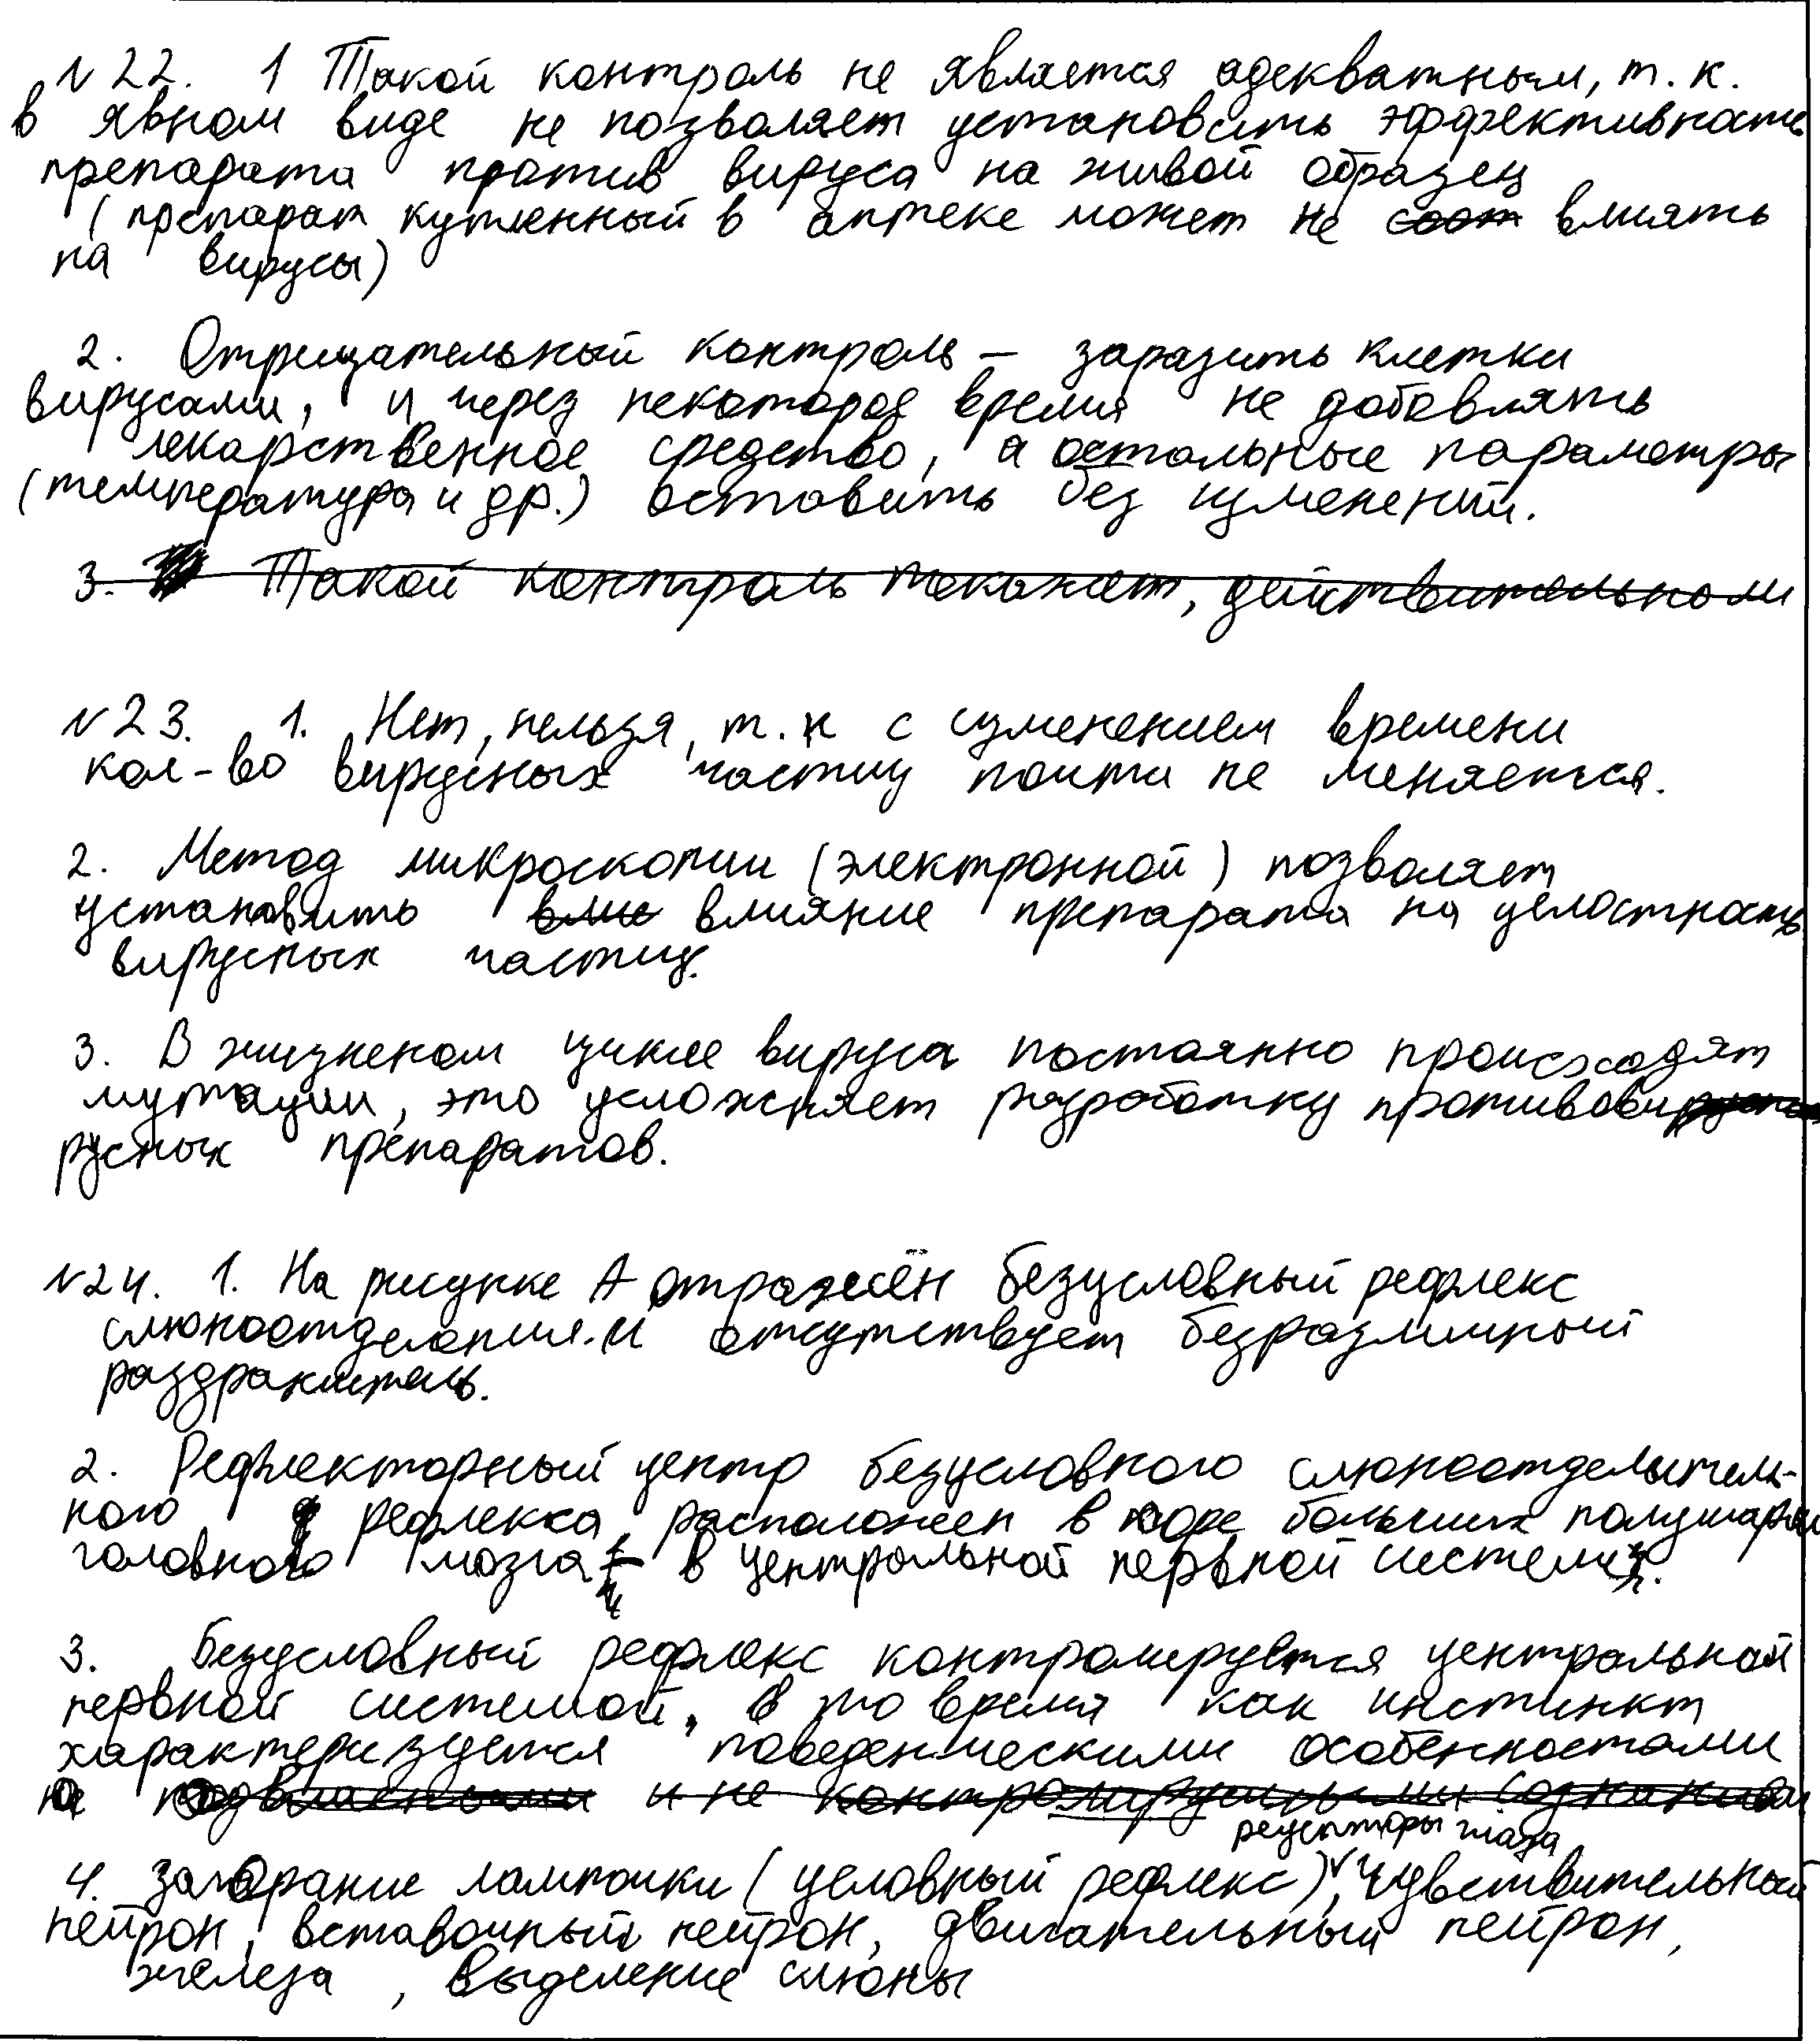 N 22. 1 Такой контроль не является адекватным, т. к.
в явном виде не позволяет установить эффективность
препарата против вируса на живой образец
(препарат купленный в аптеке может не влиять
на вирусы)
2. Отрицательный контроль – заразить клетки
вирусами, и через некоторое время не добавлять
лекарственное средство, а остальные параметры
(температура и др.) оставить без изменений.
3. Такой контроль покажет, действительно ли
N 23. 1. Нет, нельзя, т. к с изменением времени
кол-во вирусных частиц почти не меняется.
2. Метод микроскопии (электронной) позволяет
установить влияние препарата на целостность
вирусных частиц.
3. В жизненом цикле вируса постоянно происходят
мутации, это усложняет разработку противови
русных препаратов.
N24. 1. На рисунке А отражён безусловный рефлекс
слюноотделения. и отсутствует безразличный
раздражитель.
2. Рефлекторный центр безусловного слюноотделитель-
ного рефлекса расположен в коре больших полушарий
головного мозга в центральной нервной системе.
3. Безусловный рефлекс контролируется центральной
нервной системой, в то время как инстинкт
характеризуется поведенческими особенностами
не подвластными и не контролируемыми сознанием
рецепторы глаза
4. Загорание лампочки (условный рефлекс), чувствительный
нейрон, вставочный нейрон, двигательный нейрон,
железа, выделение слюны